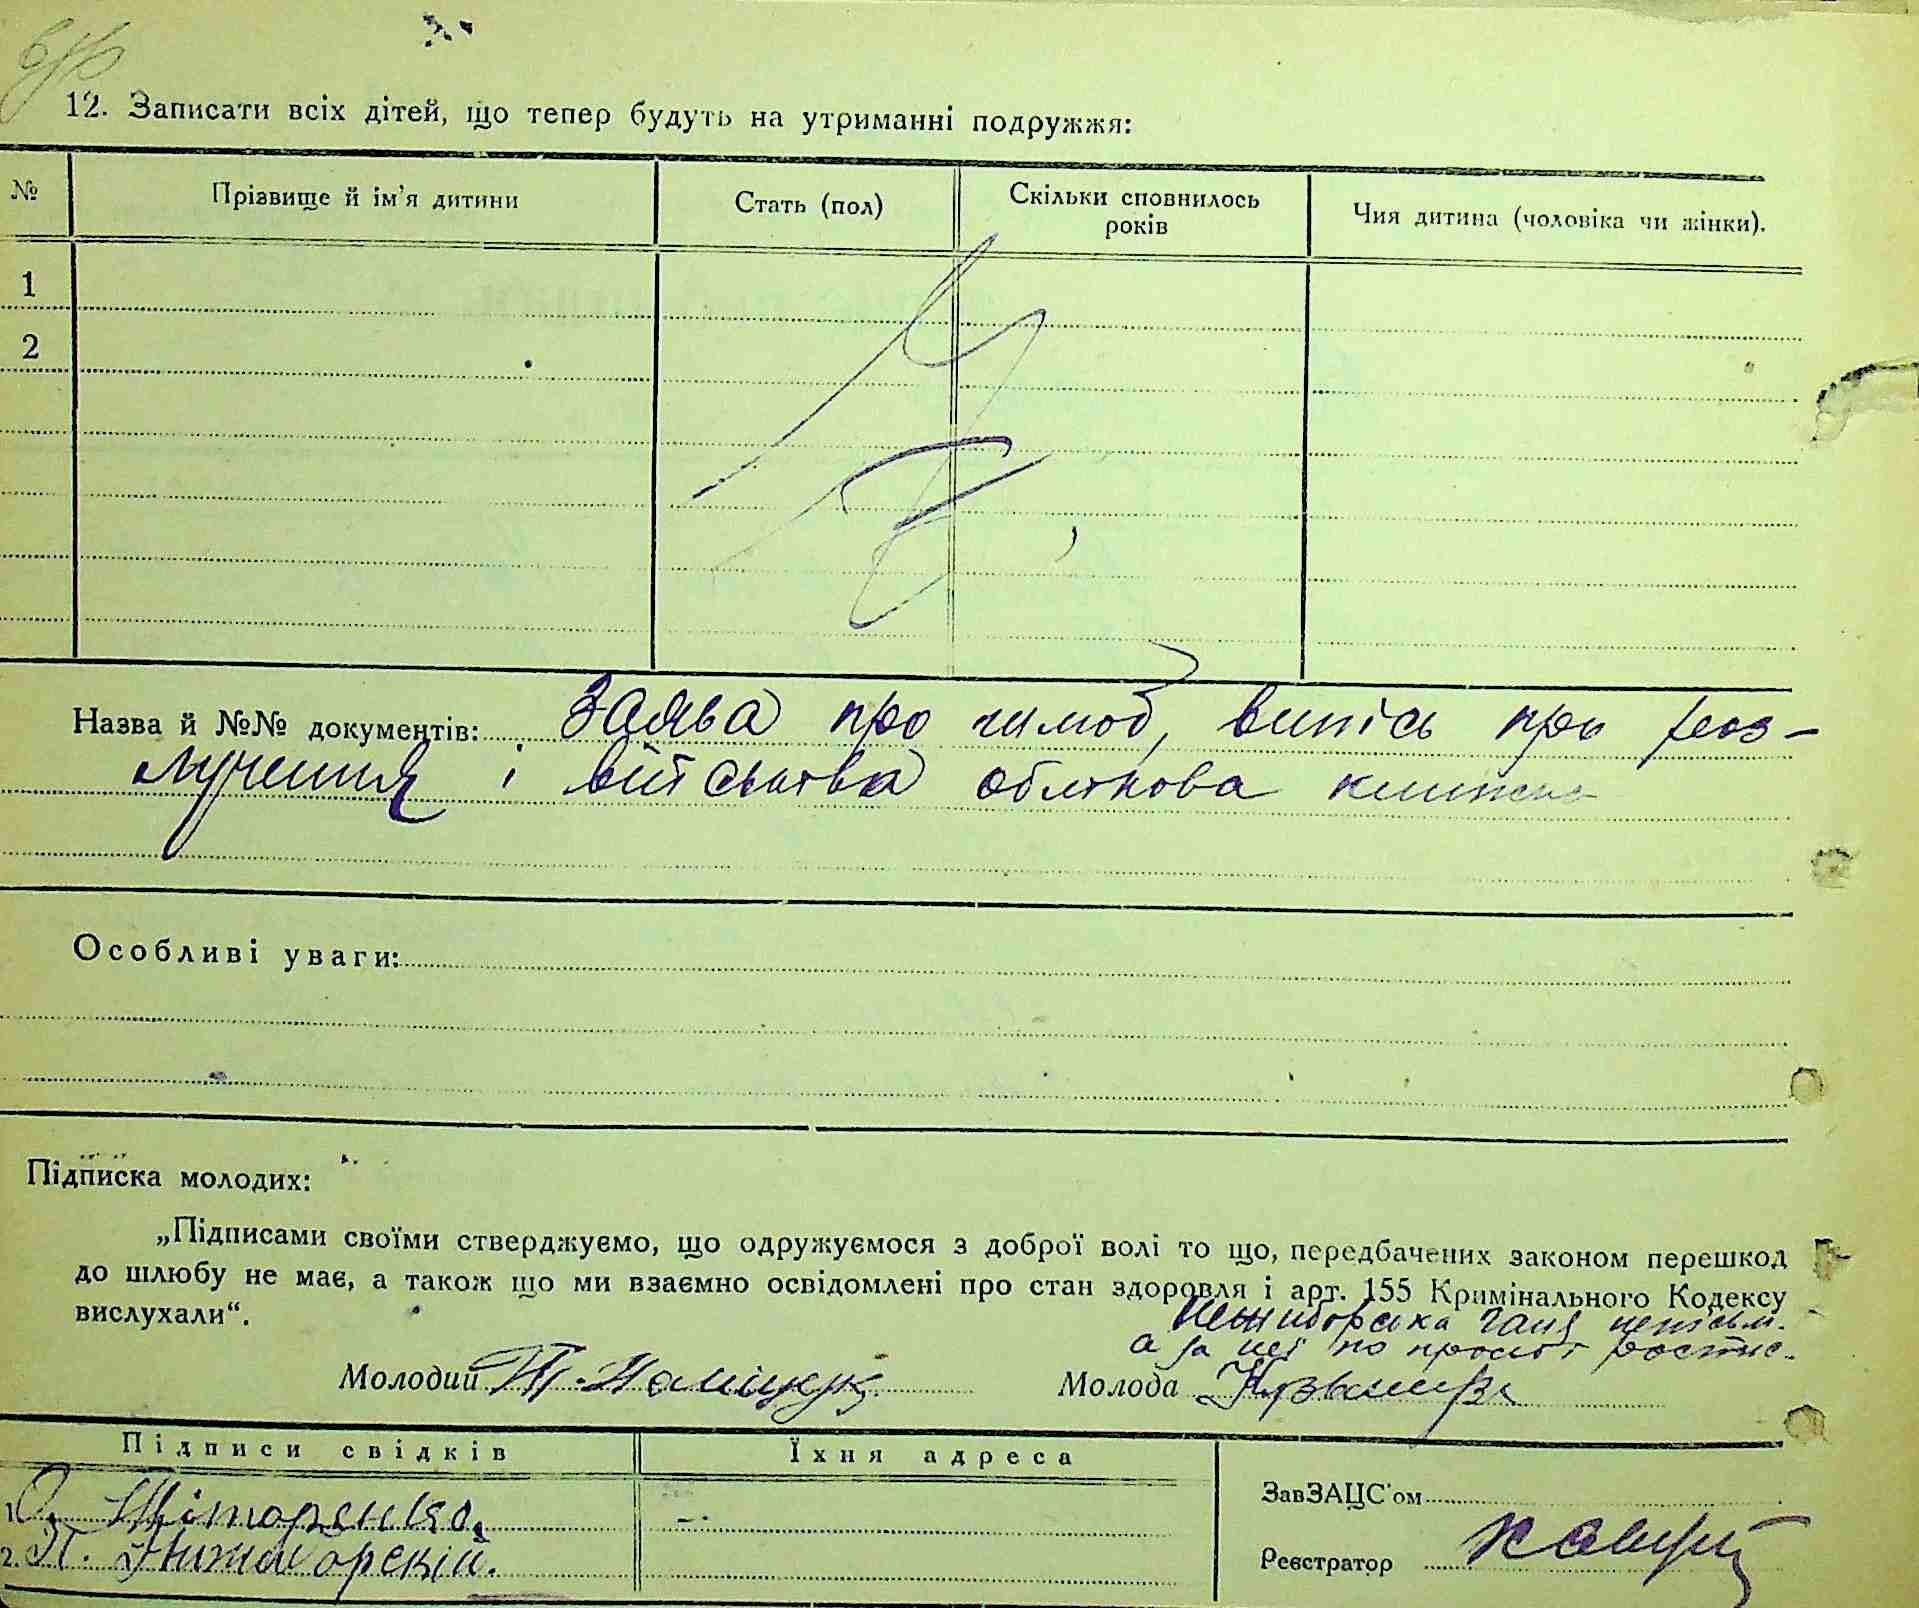 12. Записати всіх дітей, що тепер будуть на утриманні подружжя:
№ Прізвище й ім'я дитини Стать (пол) Скільки сповнилось років Чия дитина (чоловіка чи жінки).
1
2
Назва й №№ документів: Заява про шлюб, випісь про роз-
лучення і військова облікова книжка
Особливі уваги:
Підписка молодих:
„Підписами своїми стверджуємо, що одружуємося з доброї волі то що, передбачених законом перешкод
до шлюбу не має, а також що ми взаємно освідомлені про стан здоровля і арт. 155 Кримінального Кодексу
вислухали“.
Нежиборська Ганя неписьм.
а за неї по просьбі
Молодий Молода
Підписи свідків Їхня адреса
1. О. Тіторенко.
2. Нижиборский.
ЗавЗАЦС'ом
Реєстратор